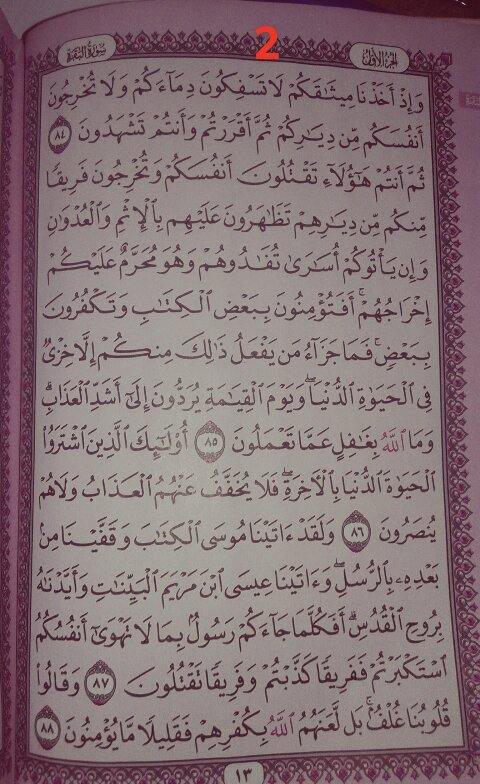 2
الجزء الأول
سورة البقرة
وَإِذْ أَخَذْنَا مِيثَٰقَكُمْ لَا تَسْفِكُونَ دِمَآءَكُمْ وَلَا تُخْرِجُونَ
أَنفُسَكُم مِّن دِيَٰرِكُمْ ثُمَّ أَقْرَرْتُمْ وَأَنتُمْ تَشْهَدُونَ ٨٤
ثُمَّ أَنتُمْ هَٰٓؤُلَآءِ تَقْتُلُونَ أَنفُسَكُمْ وَتُخْرِجُونَ فَرِيقًا
مِّنكُم مِّن دِيَٰرِهِمْ تَظَٰهَرُونَ عَلَيْهِم بِٱلْإِثْمِ وَٱلْعُدْوَٰنِ
وَإِن يَأْتُوكُمْ أُسَٰرَىٰ تُفَٰدُوهُمْ وَهُوَ مُحَرَّمٌ عَلَيْكُمْ
إِخْرَاجُهُمْ ۚ أَفَتُؤْمِنُونَ بِبَعْضِ ٱلْكِتَٰبِ وَتَكْفُرُونَ
بِبَعْضٍ ۚ فَمَا جَزَآءُ مَن يَفْعَلُ ذَٰلِكَ مِنكُمْ إِلَّا خِزْىٌ
فِى ٱلْحَيَوٰةِ ٱلدُّنْيَا ۖ وَيَوْمَ ٱلْقِيَٰمَةِ يُرَدُّونَ إِلَىٰٓ أَشَدِّ ٱلْعَذَابِ ۗ
وَمَا ٱللَّهُ بِغَٰفِلٍ عَمَّا تَعْمَلُونَ ٨٥ أُو۟لَٰٓئِكَ ٱلَّذِينَ ٱشْتَرَوُا۟
ٱلْحَيَوٰةَ ٱلدُّنْيَا بِٱلْـَٔاخِرَةِ ۖ فَلَا يُخَفَّفُ عَنْهُمُ ٱلْعَذَابُ وَلَا هُمْ
يُنصَرُونَ ٨٦ وَلَقَدْ ءَاتَيْنَا مُوسَى ٱلْكِتَٰبَ وَقَفَّيْنَا مِنۢ
بَعْدِهِۦ بِٱلرُّسُلِ ۖ وَءَاتَيْنَا عِيسَى ٱبْنَ مَرْيَمَ ٱلْبَيِّنَٰتِ وَأَيَّدْنَٰهُ
بِرُوحِ ٱلْقُدُسِ ۗ أَفَكُلَّمَا جَآءَكُمْ رَسُولٌۢ بِمَا لَا تَهْوَىٰٓ أَنفُسُكُمُ
ٱسْتَكْبَرْتُمْ فَفَرِيقًا كَذَّبْتُمْ وَفَرِيقًا تَقْتُلُونَ ٨٧ وَقَالُوا۟
قُلُوبُنَا غُلْفٌۢ ۚ بَل لَّعَنَهُمُ ٱللَّهُ بِكُفْرِهِمْ فَقَلِيلًا مَّا يُؤْمِنُونَ ٨٨
١٣